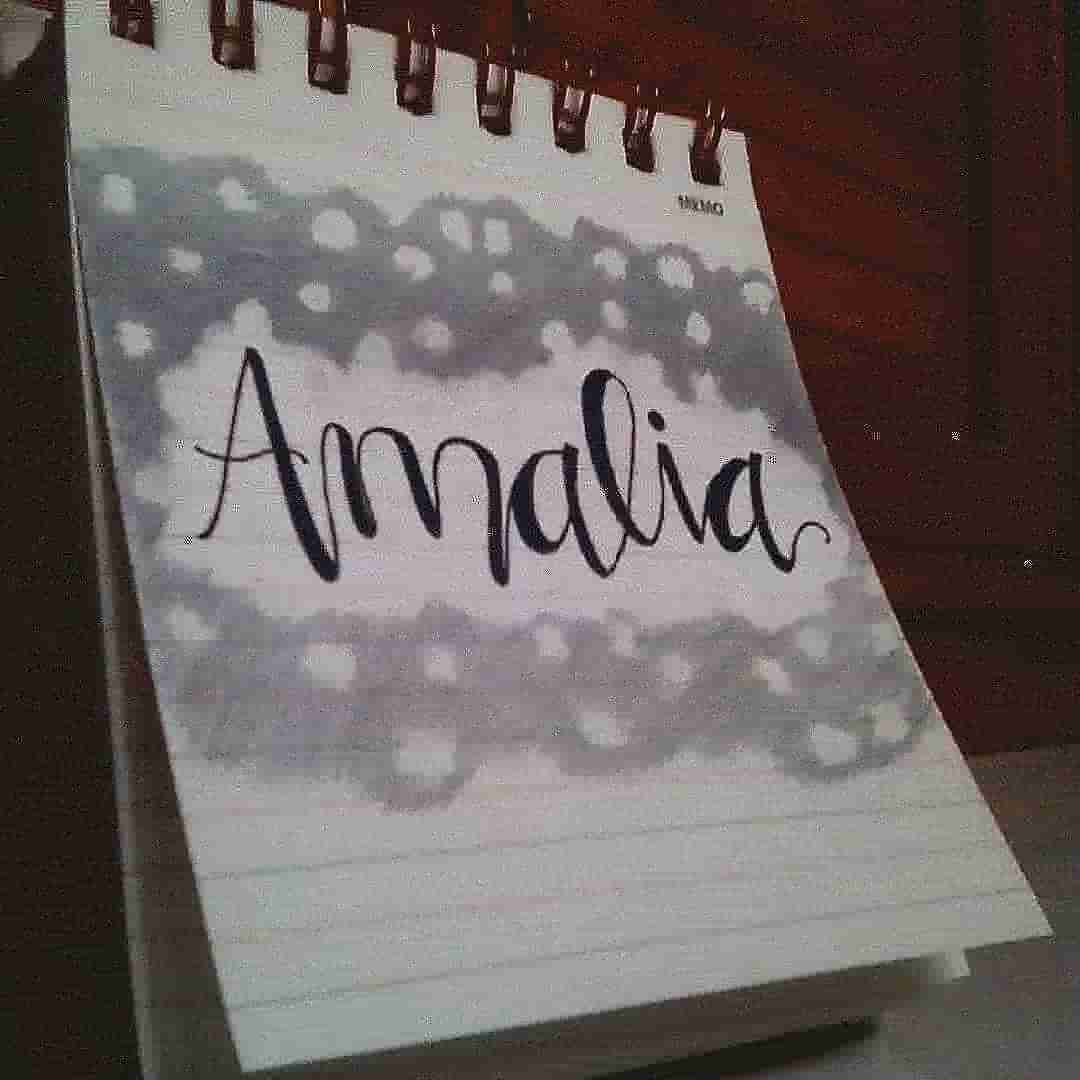 MEMO
Amalia